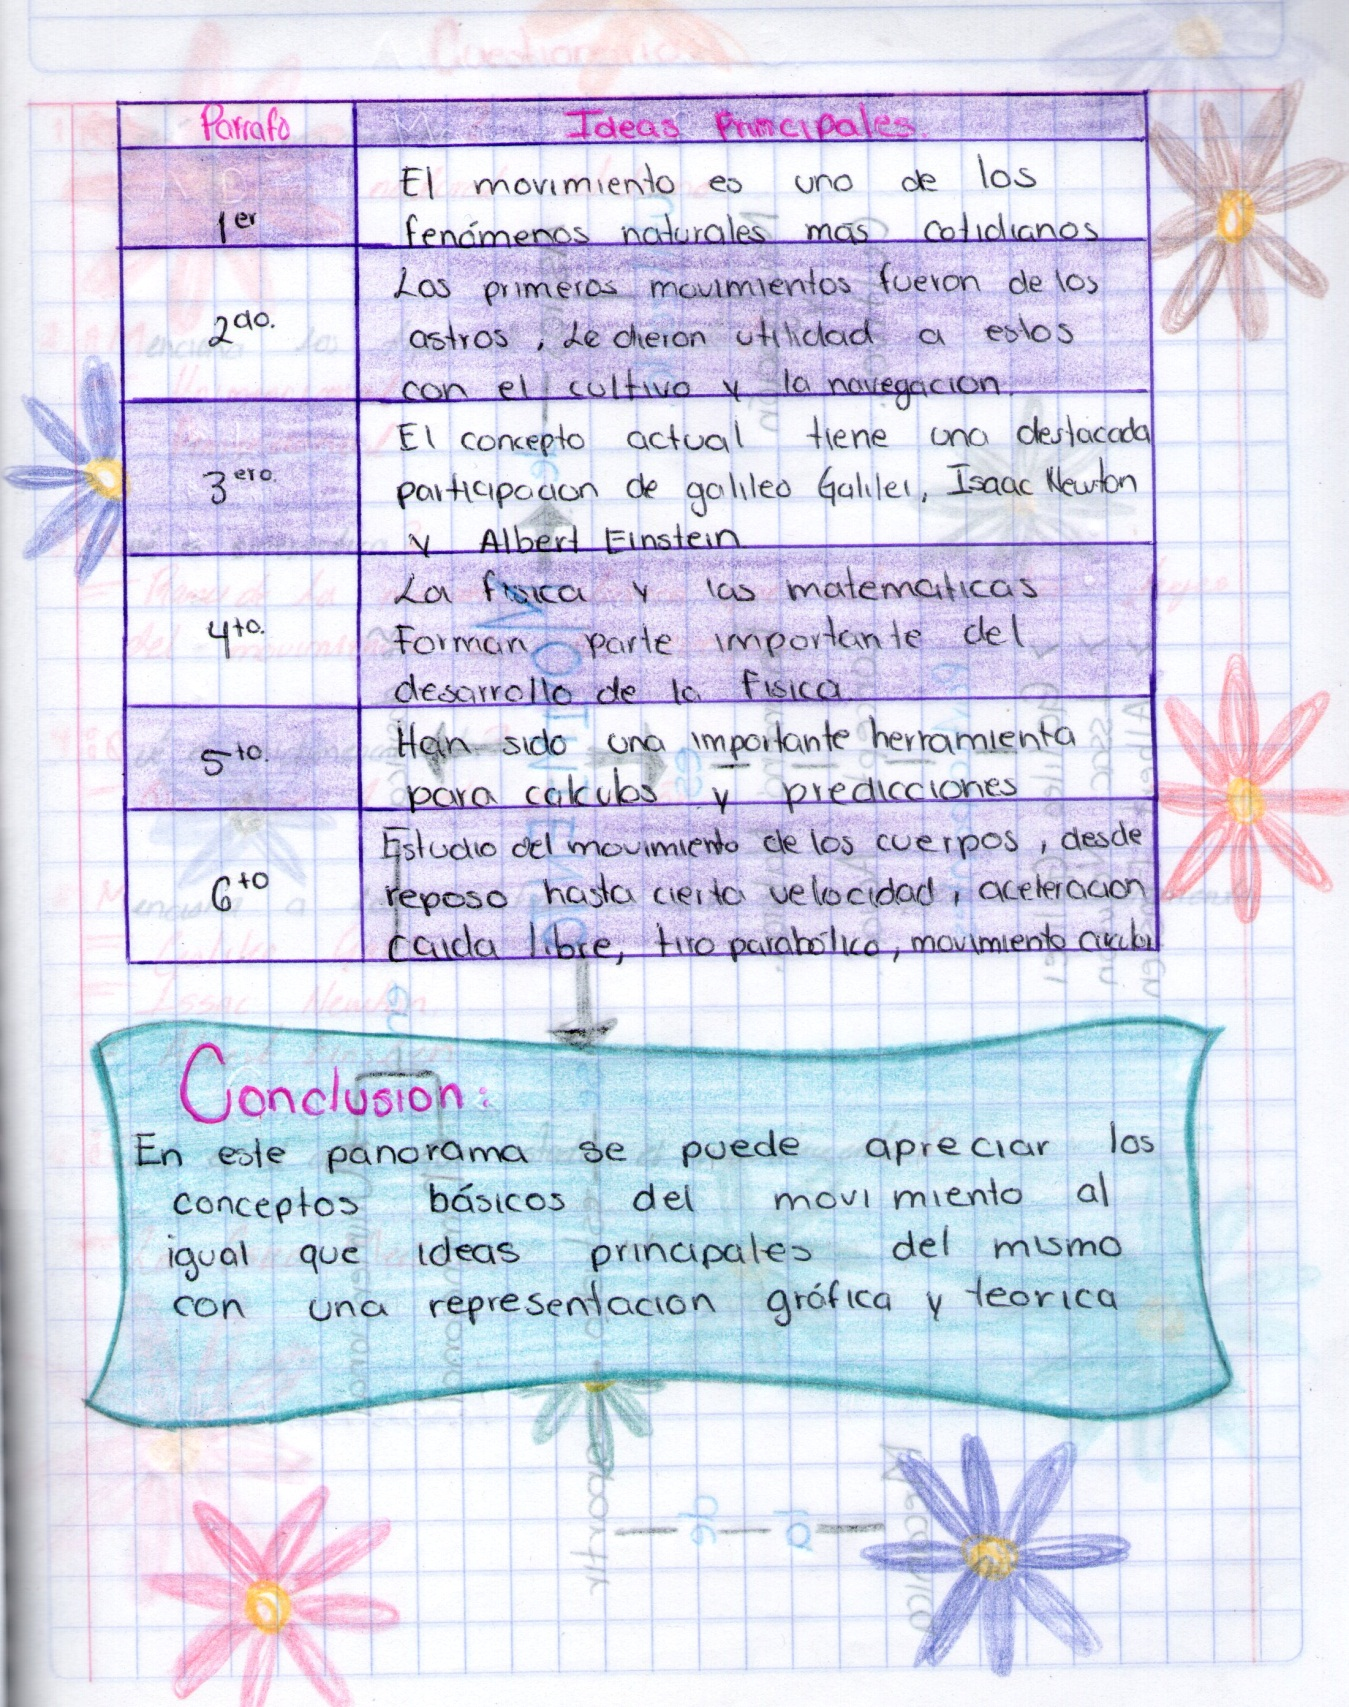 Parrafo Ideas Principales.
1er
El movimiento es uno de los
fenómenos naturales mas cotidianos
2do.
Los primeros movimientos fueron de los
astros, Le dieron utilidad a estos
con el cultivo y la navegacion.
3ero.
El concepto actual tiene una destacada
participacion de galileo Galilei, Isaac Newton
y Albert Einstein
4to.
La fisica y las matematicas
Forman parte importante del
desarrollo de la fisica
5to.
Han sido una importante herramienta
para calculos y predicciones
6to
Estudio del movimiento de los cuerpos, desde
reposo hasta cierta velocidad, aceleracion
caida libre, tiro parabólico, movimiento circular
Conclusion:
En este panorama se puede apreciar los
conceptos básicos del movimiento al
igual que ideas principales del mismo
con una representacion gráfica y teorica